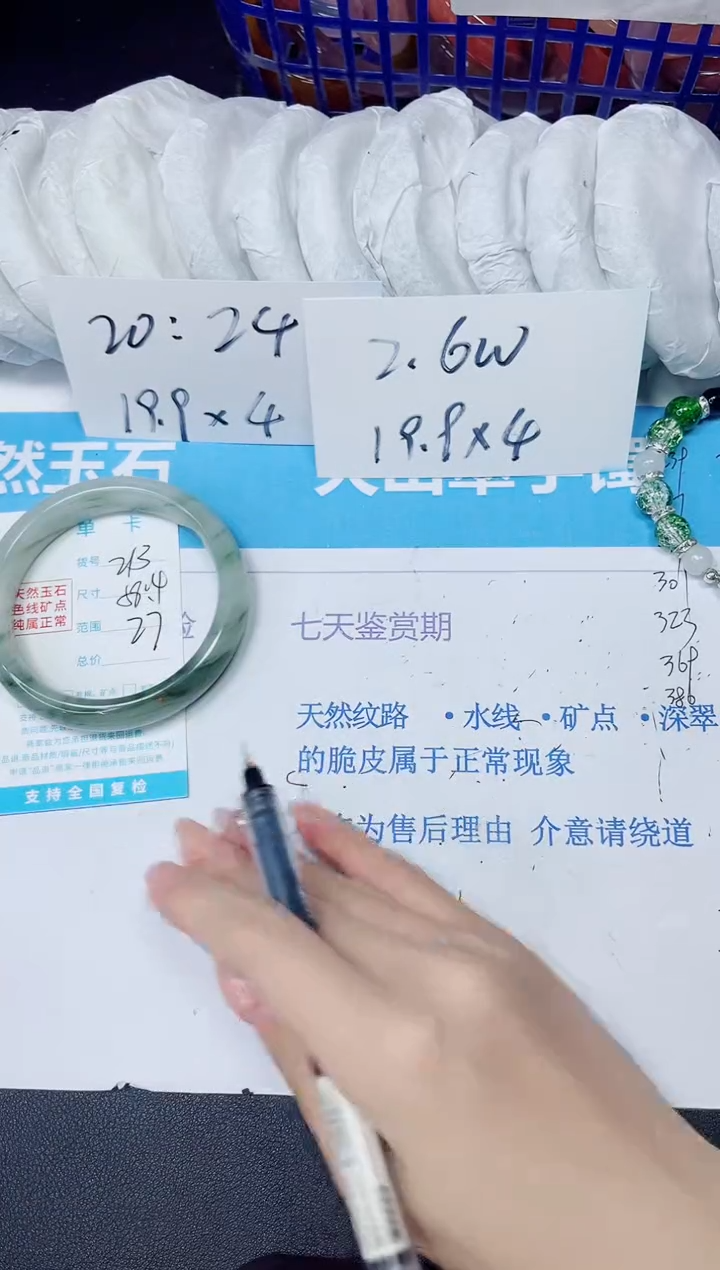 20:24
19.9×4
2.6W
19.9×4
然玉石
单 卡
拨号 213
尺寸 58.4
范围 27
总价
天然玉石
色线矿点
纯属正常
支持全国复检
七天鉴赏期
天然纹路 ·水线 ·矿点 ·深翠
的脆皮属于正常现象
为售后理由 介意请绕道
301
323
369
386